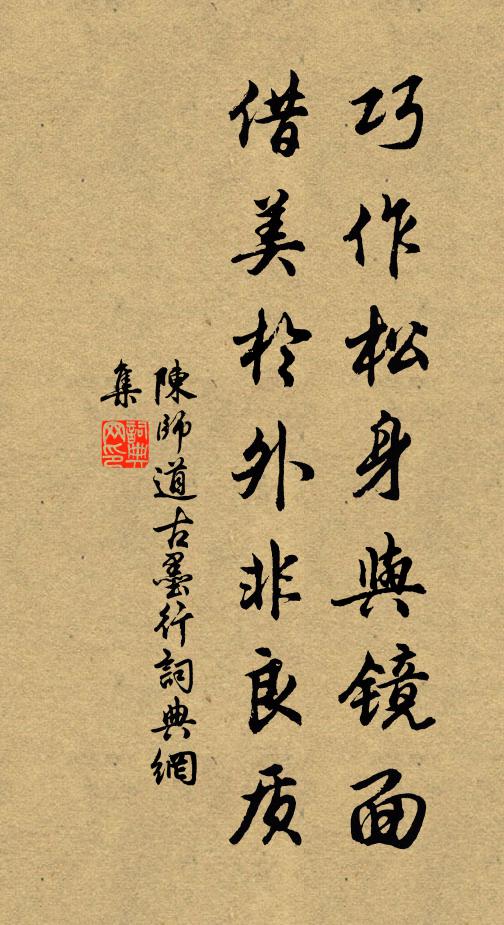 巧作松身與镜面
借美於外非良质
陳師道古墨行詞典網
集
詞典网印